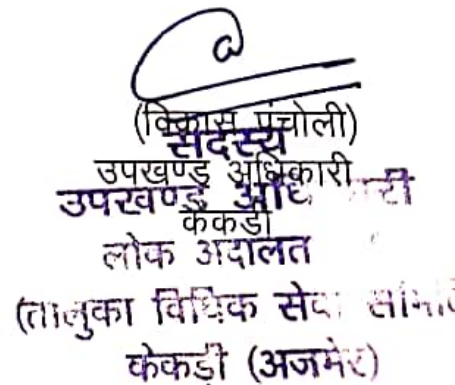 (विकास पंचोली)
सदस्य
उपखण्ड अधिकारी
उपखण्ड अधिकारी
केकडी
लोक अदालत
(तालुका विधिक सेवा समिति
केकडी (अजमेर)